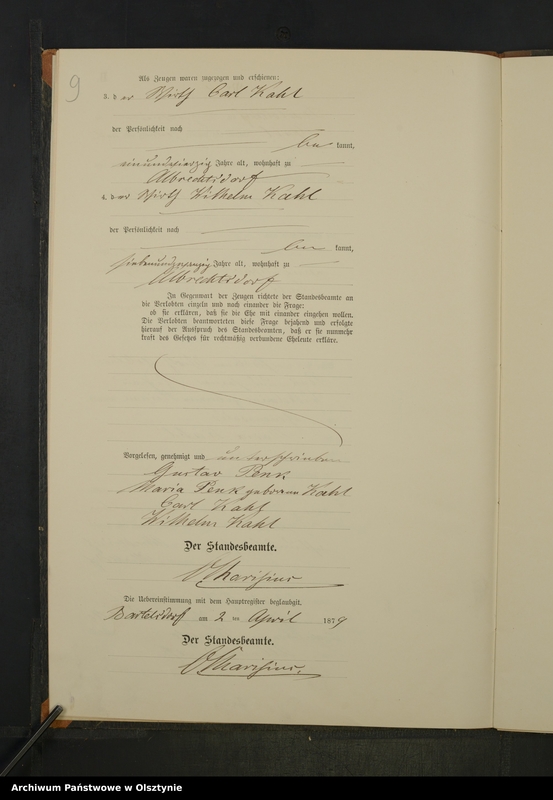 9
Als Zeugen waren zugezogen und erschienen:
3. der Wirth Carl Kahl
der Persönlichkeit nach
be kannt,
einundvierzig Jahre alt, wohnhaft zu
Albrechtsdorf
4. der Wirth Wilhelm Kahl
der Persönlichkeit nach
be kannt,
siebenundzwanzig Jahre alt, wohnhaft zu
Albrechtsdorf
In Gegenwart der Zeugen richtete der Standesbeamte an
die Verlobten einzeln und nach einander die Frage:
ob sie erklären, daß sie die Ehe mit einander eingehen wollen.
Die Verlobten beantworteten diese Frage bejahend und erfolgte
hierauf der Ausspruch des Standesbeamten, daß er sie nunmehr
kraft des Gesetzes für rechtmäßig verbundene Eheleute erkläre.
Vorgelesen, genehmigt und unterschrieben
Gustav Penk
Maria Penk geborene Kahl
Carl Kahl
Wilhelm Kahl
Der Standesbeamte.
Die Uebereinstimmung mit dem Hauptregister beglaubigt.
Bartelsdorf am 2 ten April 1879
Der Standesbeamte.
Archiwum Państwowe w Olsztynie